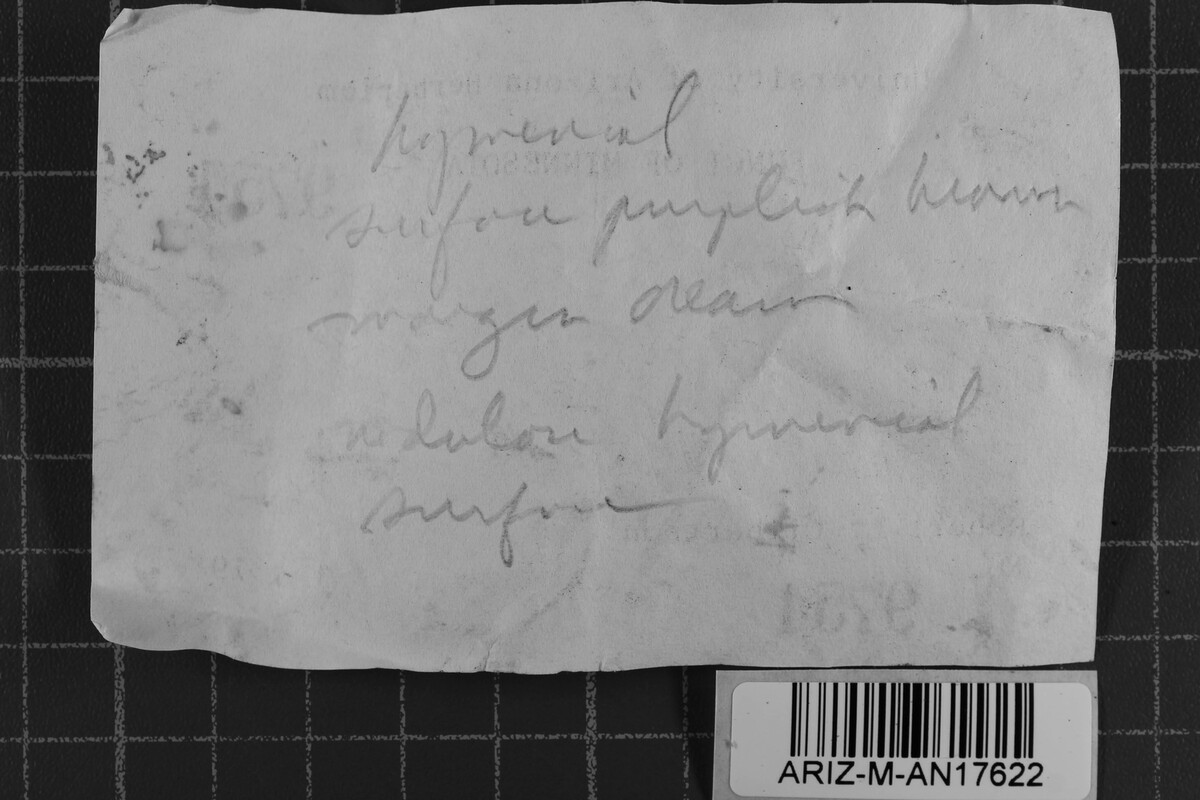 hymenial
surface purplish brown
margin cream
hymenial
surface
ARIZ-M-AN17622